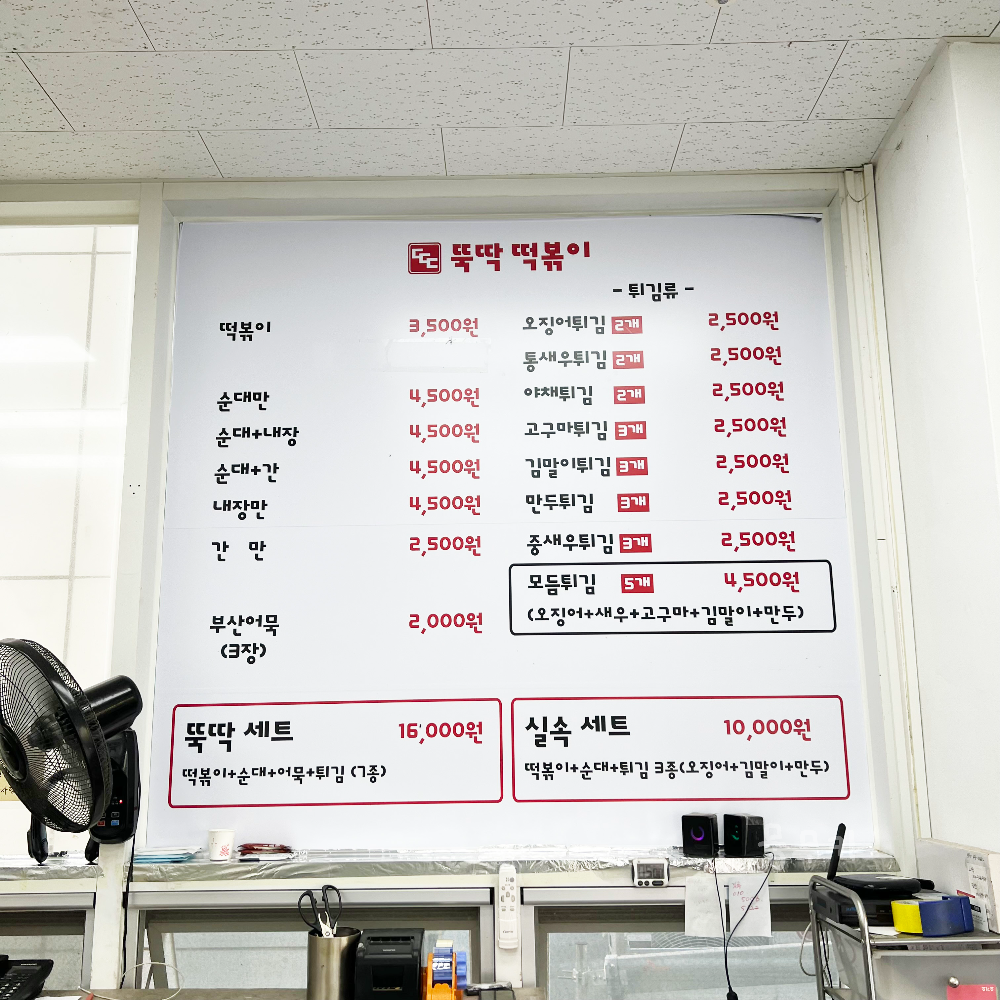 뚝딱 떡볶이
떡볶이 3,500원
순대만 4,500원
순대+내장 4,500원
순대+간 4,500원
내장만 4,500원
간 만 2,500원
부산어묵 2,000원
(3장)
- 튀김류 -
오징어튀김 2개 2,500원
통새우튀김 2개 2,500원
야채튀김 2개 2,500원
고구마튀김 3개 2,500원
김말이튀김 3개 2,500원
만두튀김 3개 2,500원
중새우튀김 3개 2,500원
모듬튀김 5개 4,500원
(오징어+새우+고구마+김말이+만두)
뚝딱 세트 16,000원
떡볶이+순대+어묵+튀김 (7종)
실속 세트 10,000원
떡볶이+순대+튀김 3종(오징어+김말이+만두)